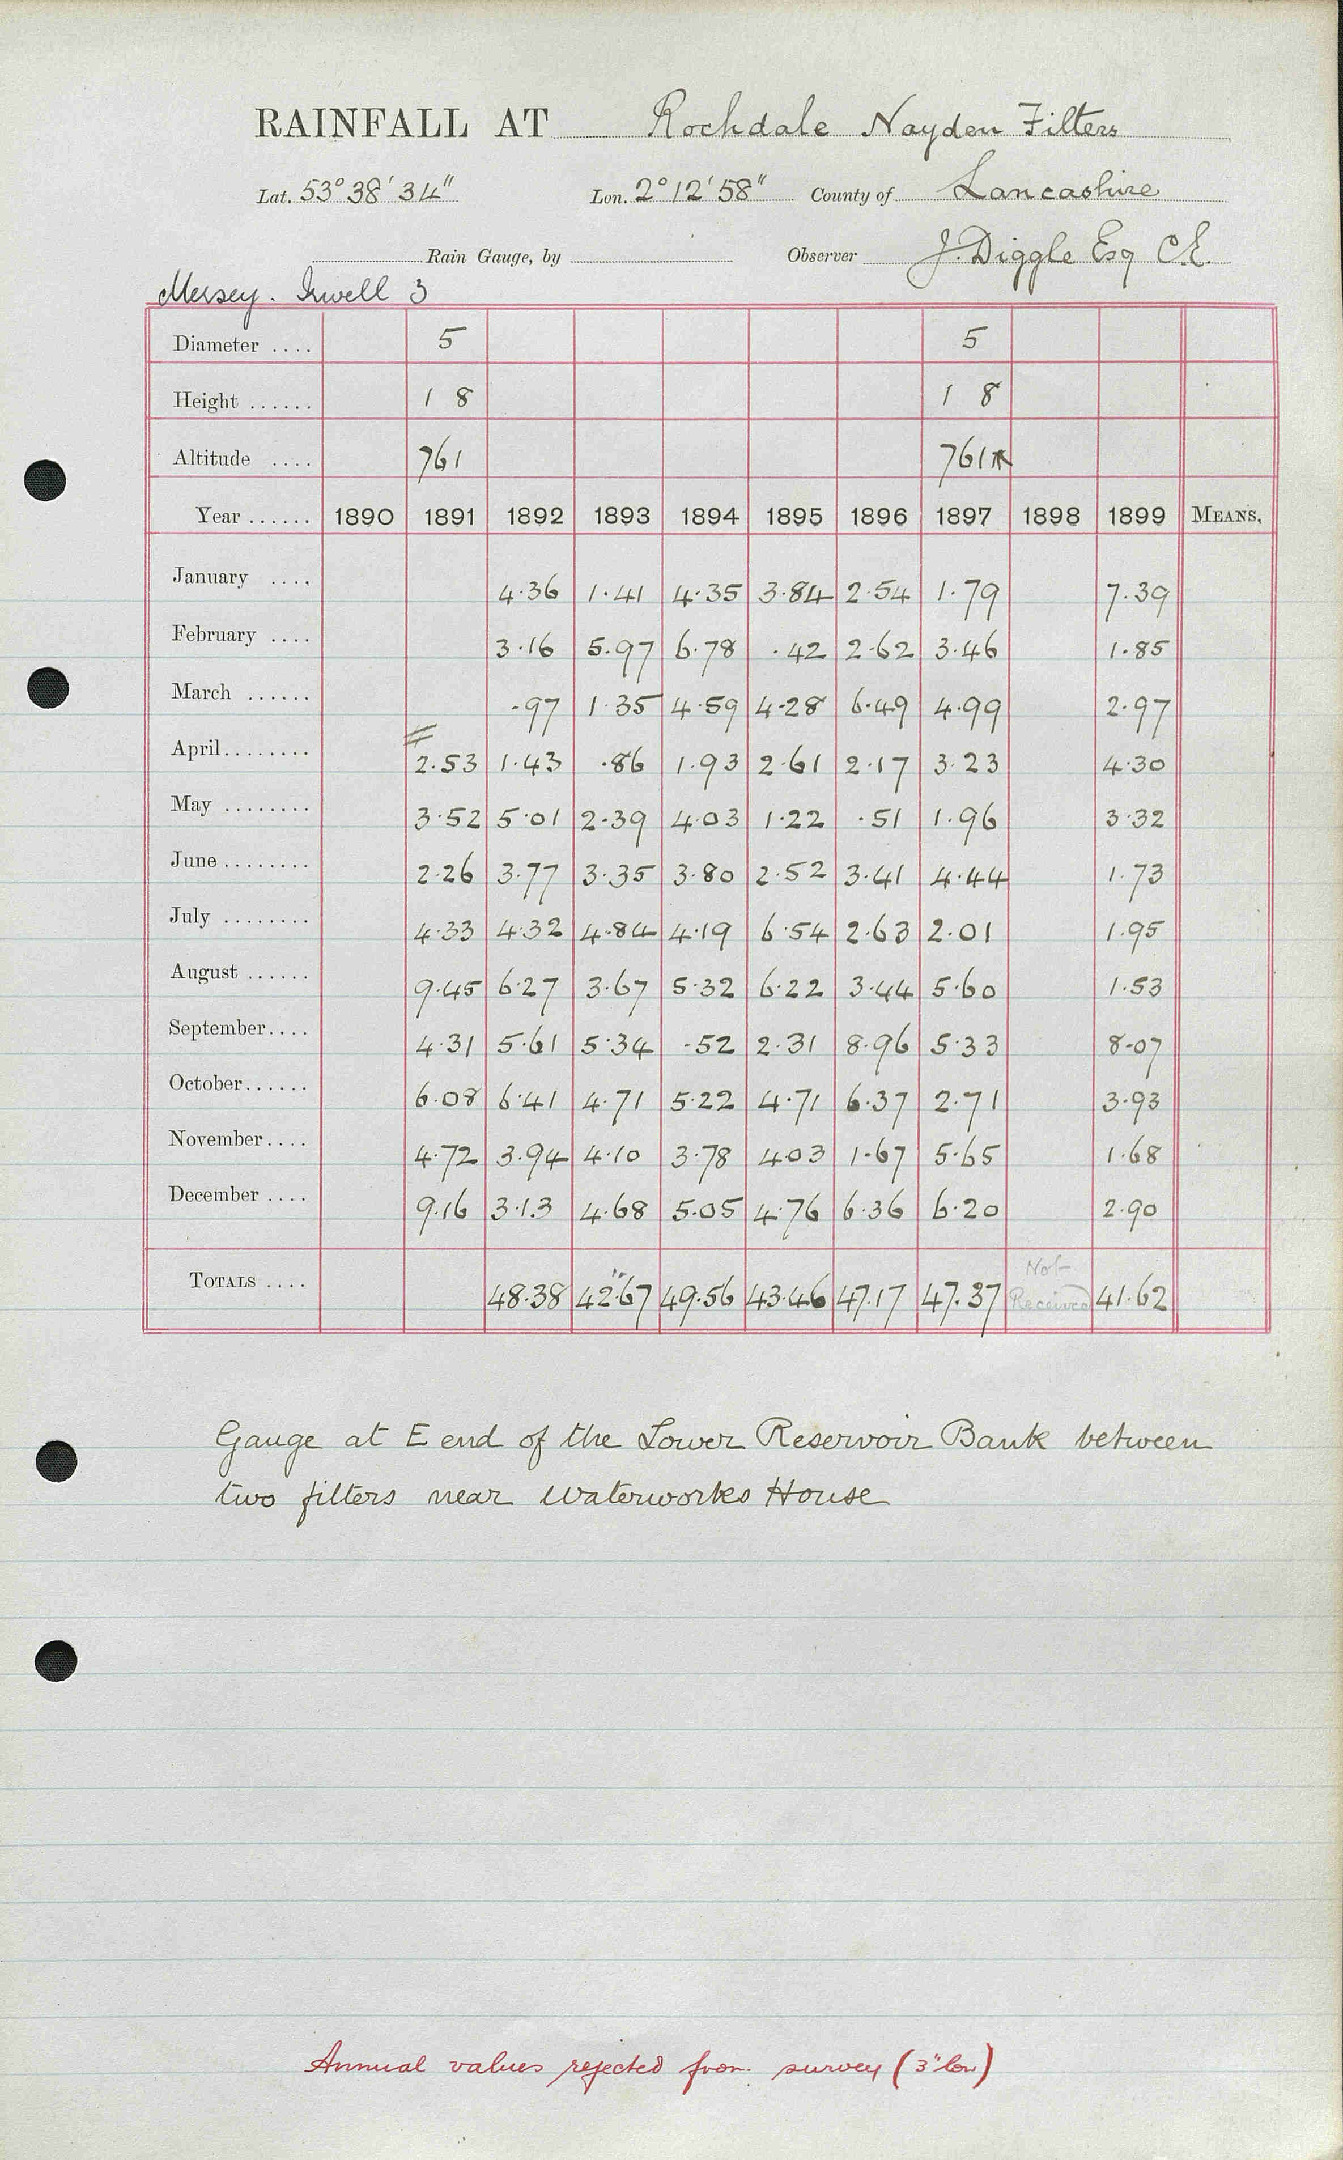 RAINFALL AT Rochdale Nayden Filters
Lat. 53° 38' 34" Lon. 2° 12' 58" County of Lancashire
Rain Gauge, by Observer J. Diggle Esq C.E.
Mersey. Irwell 3
Diameter .... 5 5
Height ...... 1 8 1 8
Altitude .... 761 761
Year ...... 1890 1891 1892 1893 1894 1895 1896 1897 1898 1899 MEANS.
January .... 4.36 1.41 4.35 3.84 2.54 1.79 7.39
February .... 3.16 5.97 6.78 .42 2.62 3.46 1.85
March ...... .97 1.35 4.59 4.28 6.49 4.99 2.97
April........ 2.53 1.43 .86 1.93 2.61 2.17 3.23 4.30
May ........ 3.52 5.01 2.39 4.03 1.22 .51 1.96 3.32
June ........ 2.26 3.77 3.35 3.80 2.52 3.41 4.44 1.73
July ........ 4.33 4.32 4.84 4.19 6.54 2.63 2.01 1.95
August ...... 9.45 6.27 3.67 5.32 6.22 3.44 5.60 1.53
September.... 4.31 5.61 5.34 .52 2.31 8.96 5.33 8.07
October...... 6.08 6.41 4.71 5.22 4.71 6.37 2.71 3.93
November.... 4.72 3.94 4.10 3.78 4.03 1.67 5.65 1.68
December .... 9.16 3.13 4.68 5.05 4.76 6.36 6.20 2.90
TOTALS .... 48.38 42.67 49.56 43.46 47.17 47.37 Not Received 41.62
Gauge at E end of the Lower Reservoir Bank between
two filters near Waterworks House
Annual values rejected from survey (3" low)